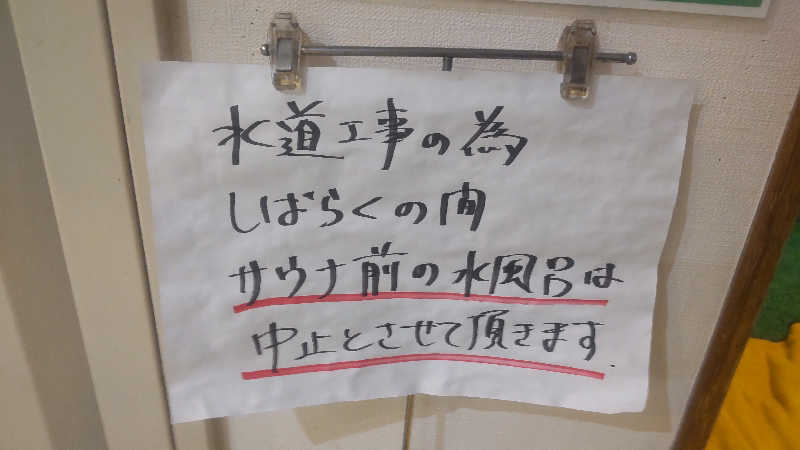 水道工事の為
しばらくの間
サウナ前の水風呂は
中止とさせて頂きます.